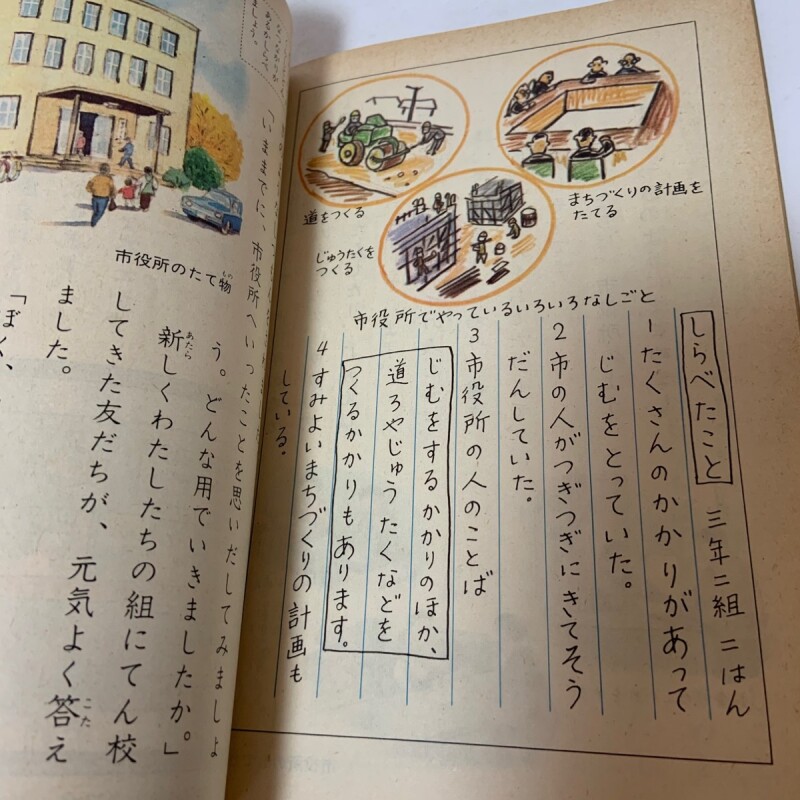 道をつくる
まちづくりの計画を
たてる
じゅうたくを
つくる
市役所でやっているいろいろなしごと
しらべたこと 三年二組 二はん
1たくさんのかかりがあって
じむをとっていた。
2市の人がつぎつぎにきてそう
だんしていた。
3市役所の人のことば
じむをするかかりのほか、
道ろやじゅうたくなどを
つくるかかりもあります。
4すみよいまちづくりの計画も
している。
ましょう。
市役所のたて物
もの
「いままでに、市役所へいったことを思いだしてみましょ
う。どんな用でいきましたか。」
新しくわたしたちの組にてん校
あたら
してきた友だちが、元気よく答え
こた
ました。
「ぼく、